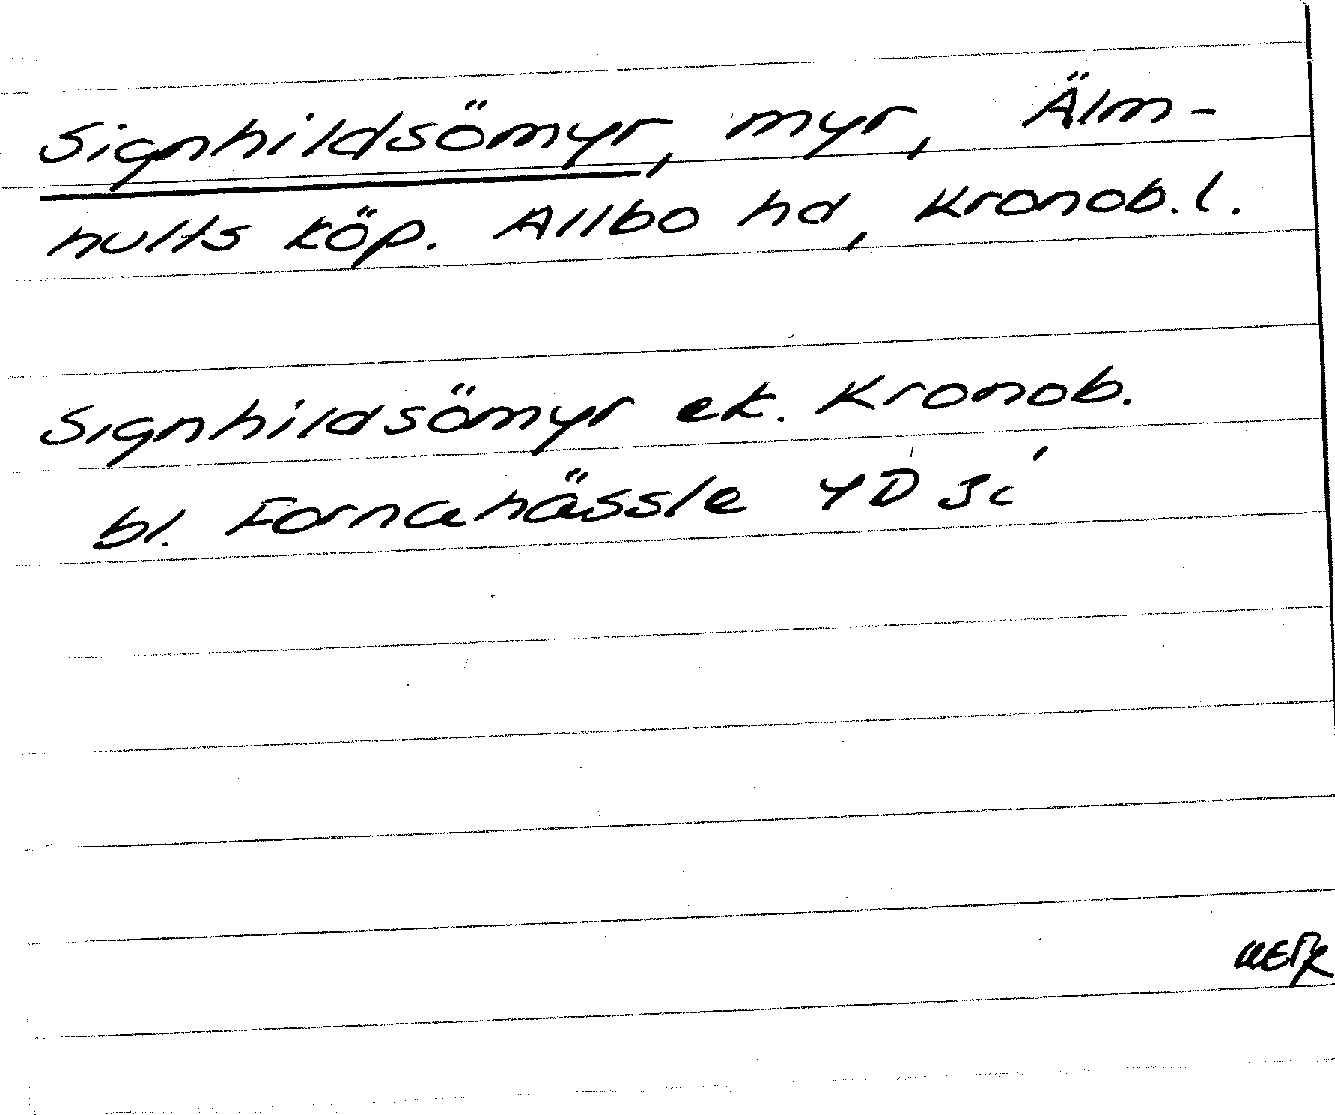 Signhildsömyr, myr, Älm-
hults köp. Allbo hd, Kronob. l.
Signhildsömyr ek. Kronob.
bl. Fornahässle 4D